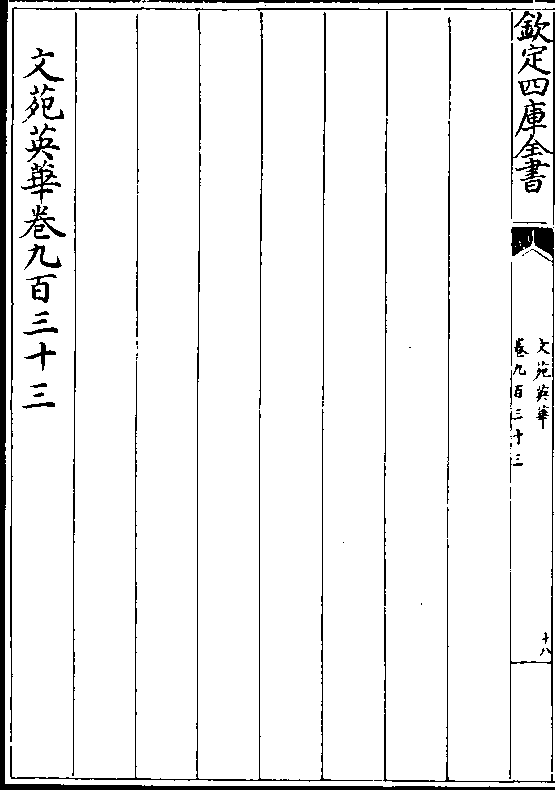 欽定四庫全書
文苑英華
卷九百三十三
十八
文苑英華卷九百三十三